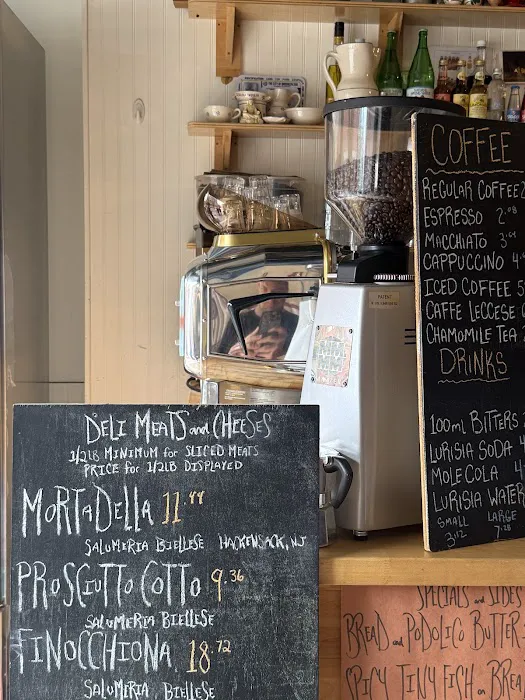 DELI MEATS and CHEESES
1/2LB MINIMUM for SLICED MEATS
PRICE for 1/2LB DISPLAYED
MORTADELLA 11.44
SALUMERIA BIELLESE HACKENSACK, NJ
PROSCIUTTO COTTO 9.36
SALUMERIA BIELLESE
FINOCCHIONA 18.72
SALUMERIA BIELLESE
COFFEE
REGULAR COFFEE
ESPRESSO 2.08
MACCHIATO 3.64
CAPPUCCINO 4
ICED COFFEE 5
CAFFE LECCESE
CHAMOMILE TEA
DRINKS
100ml BITTERS
LURISIA SODA
MOLE COLA 4
LURISIA WATER
SMALL LARGE
3.12 7.28
SPECIALS and SIDES
BREAD and PODOLICO BUTTER
SPICY TINY FISH on BREA